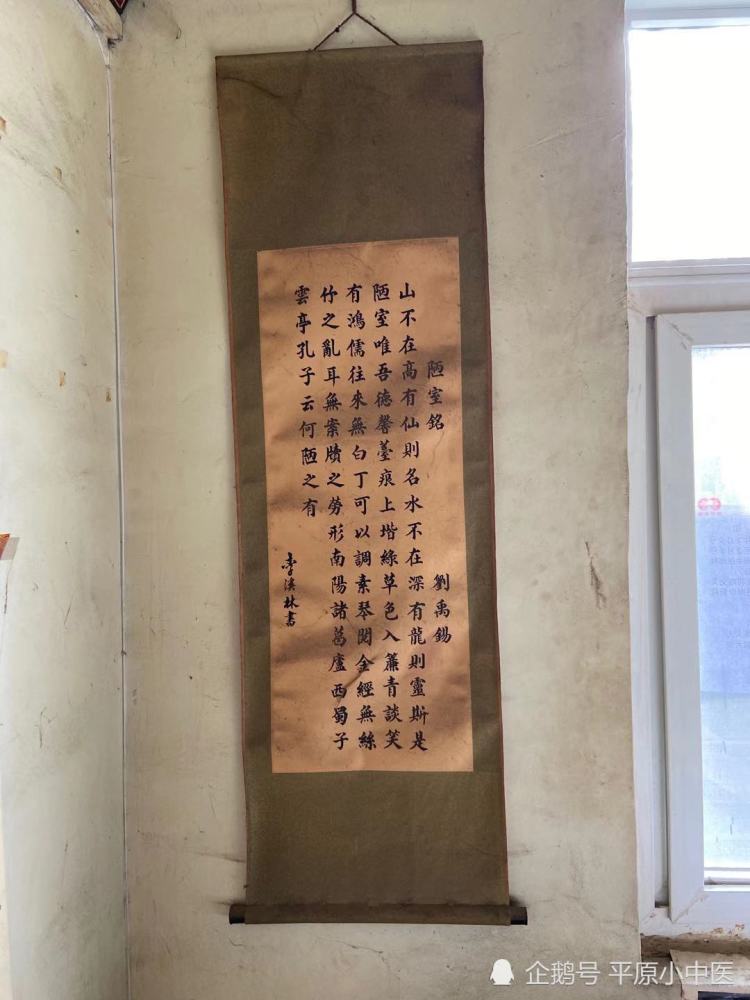 陋室銘 劉禹錫
山不在高有仙則名水不在深有龍則靈斯是
陋室唯吾德馨薹痕上堦綠草色入簾青談笑
有鴻儒往來無白丁可以調素琴閱金經無絲
竹之亂耳無案牘之勞形南陽諸葛廬西蜀子
雲亭孔子云何陋之有
李溪林書
企鹅号 平原小中医